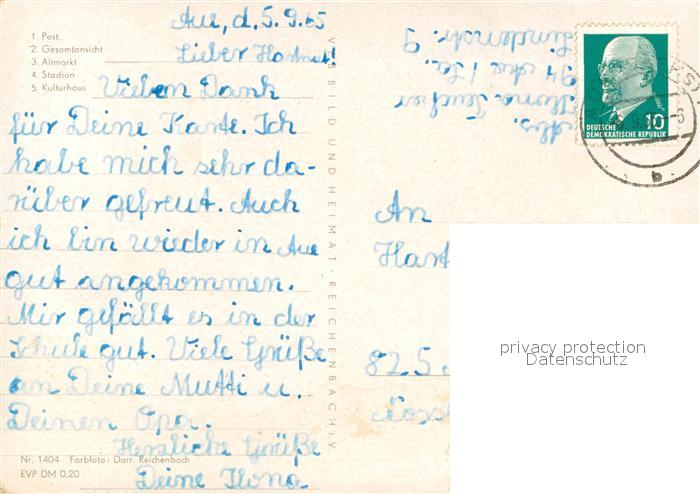 1. Post
2. Gesamtansicht
3. Altmarkt
4. Stadion
5. Kulturhaus
Aue, d. 5.9.65
Lieber Hartmut!
Vielen Dank
für Deine Karte. Ich
habe mich sehr da-
rüber gefreut. Auch
ich bin wieder in Aue
gut angekommen.
Mir gefällt es in der
Schule gut. Viele Grüße
an Deine Mutti u.
Deinen Opa.
Herzliche Grüße
Deine Ilona
Nr. 1404 Farbfoto: Darr, Reichenbach
EVP DM 0,20
VERLAG BILD UND HEIMAT · REICHENBACH i.V.
Abs.
Ilona
94 Aue / Sa.
Lindenstr. 9
DEUTSCHE 10
DEMOKRATISCHE REPUBLIK
b
An
Hart
825
privacy protection
Datenschutz